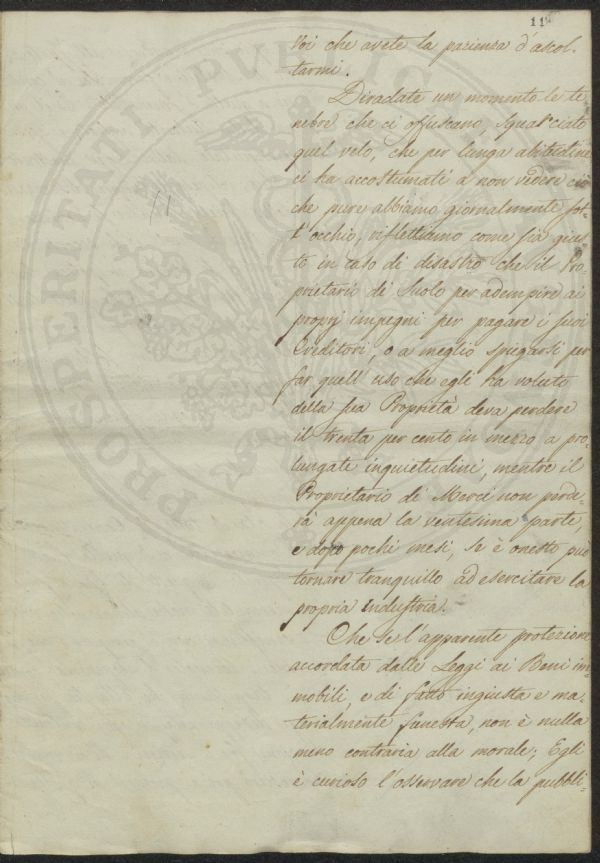 11
Voi che avete la pazienza d'ascol-
tarmi.
Diradate un momento le te-
nebre che ci offuscano, squarciato
quel velo, che per lunga abitudine
ci ha accostumati a non vedere ciò
che pure abbiamo giornalmente sot-
t'occhio, riflettiamo come sia gius-
to in caso di disastro che il Pro-
prietario di Suolo per adempire ai
proprj impegni per pagare i suoi
Creditori, o a meglio spiegarsi per
far quell'uso che egli ha voluto
della sua Proprietà deva perdere
il trenta per cento in mezzo a pro-
lungate inquietudini, mentre il
Proprietario di Merci non perde-
rà appena la ventesima parte,
e dopo pochi mesi, se è onesto può
tornare tranquillo ad esercitare la
propria industria.
Che se l'apparente protezione
accordata dalle Leggi ai Beni im-
mobili, e di fatto ingiusta e ma-
terialmente funesta, non è nulla
meno contraria alla morale; Egli
è curioso l'osservare che la pubbli-
11
PROSPERITATI PUBLIC